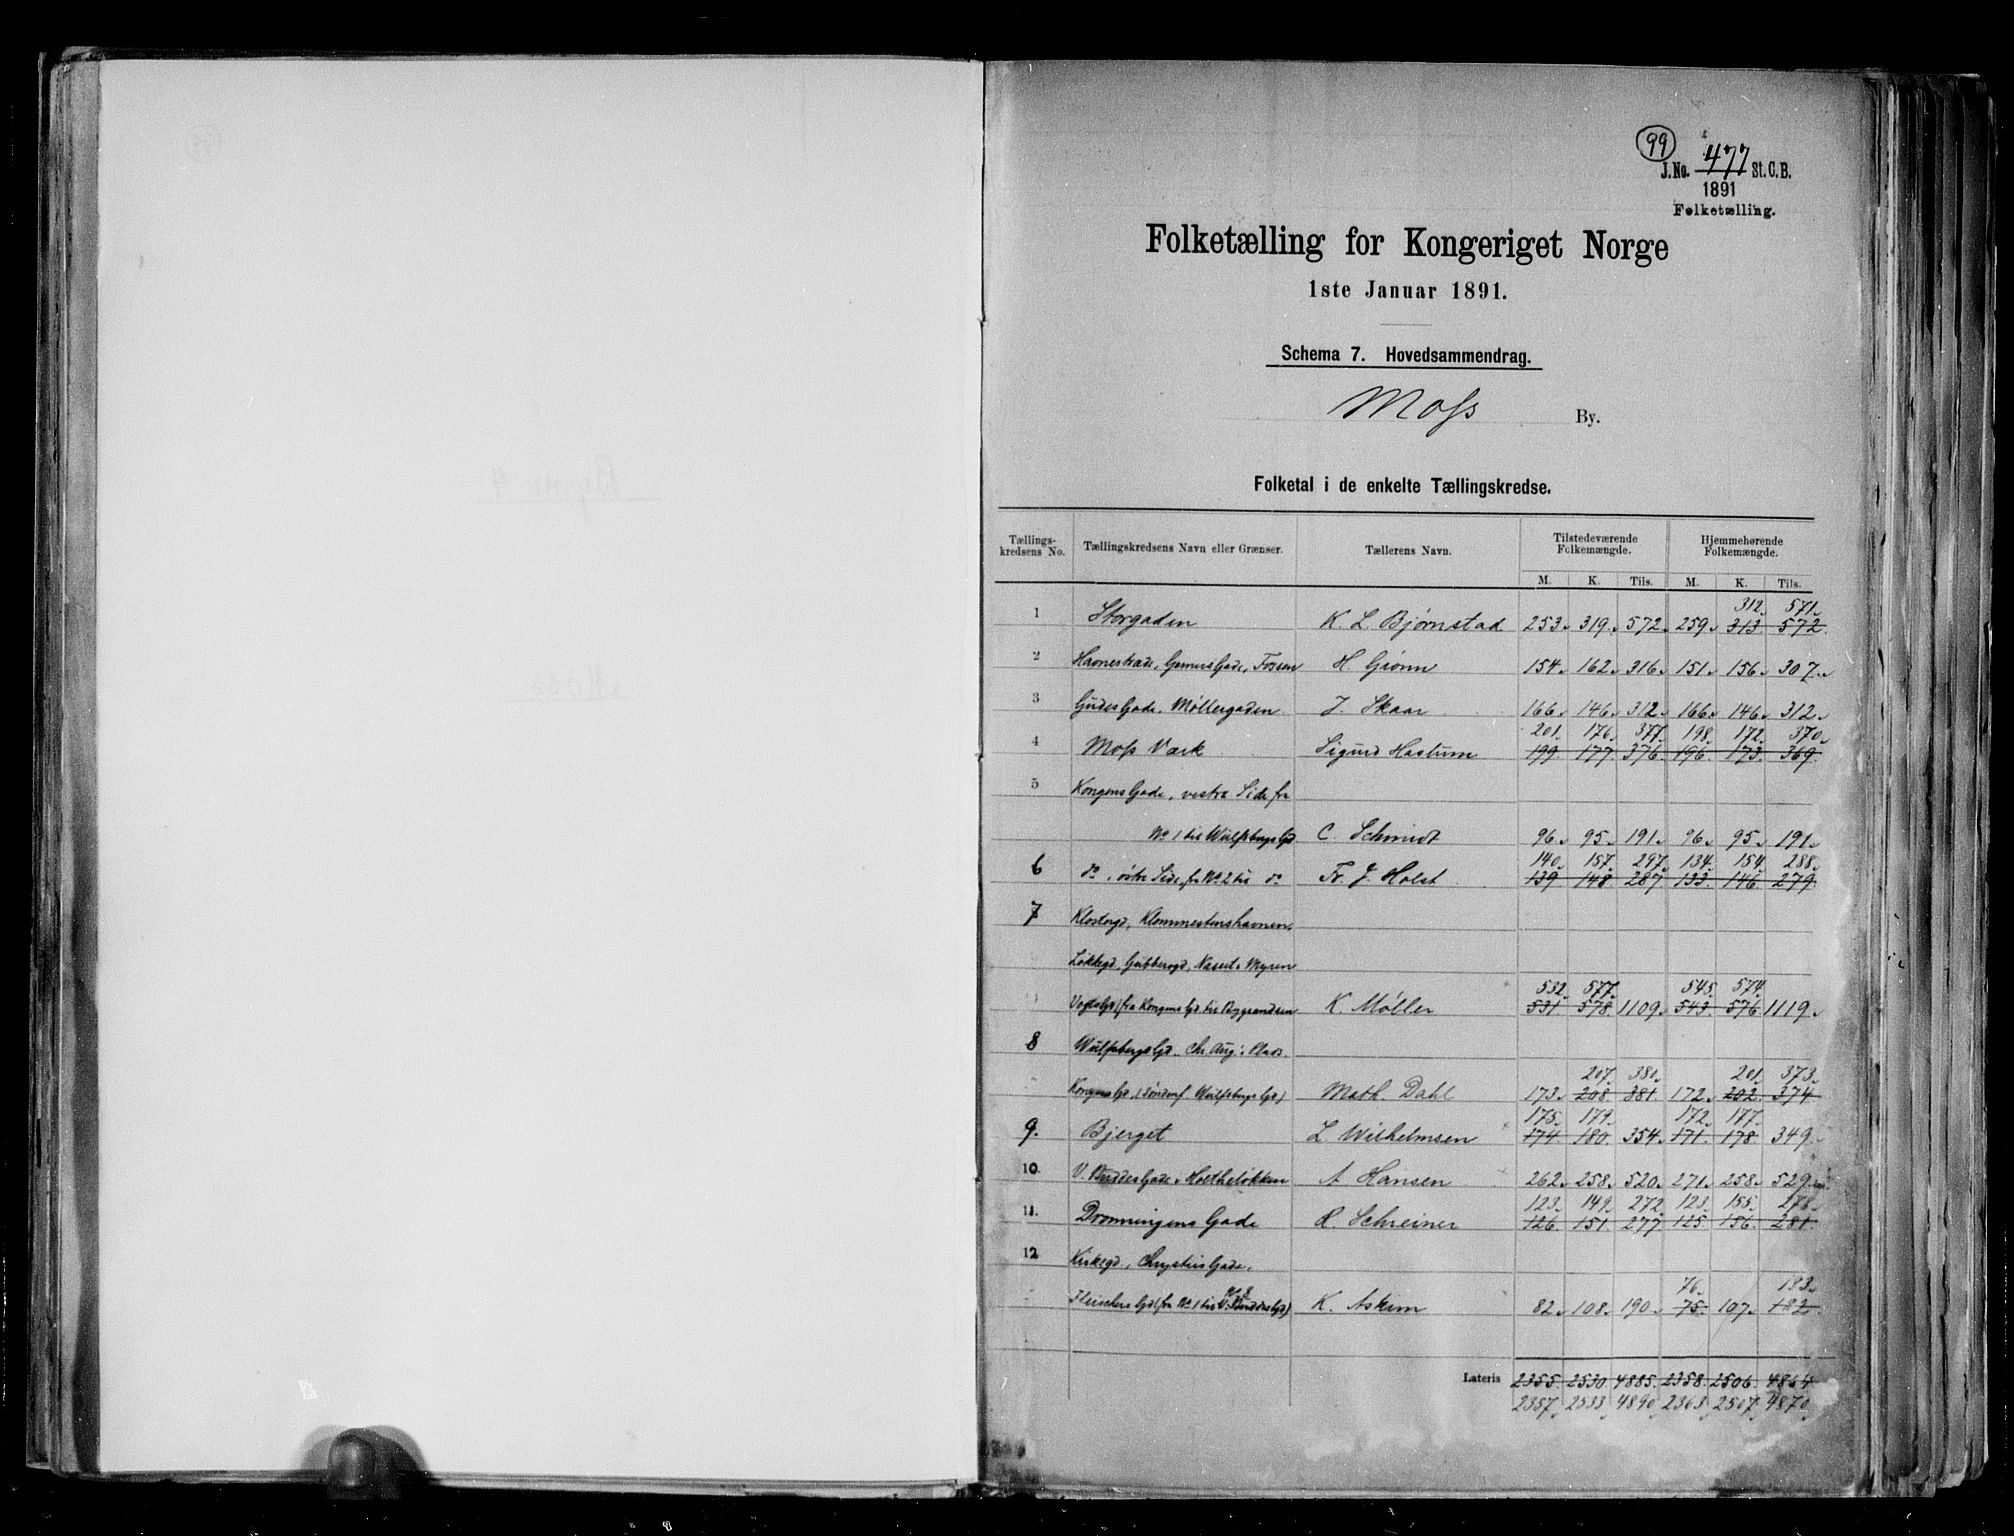 99
J.No. 477 St. C. B.
1891
Folketælling.
Folketælling for Kongeriget Norge
1ste Januar 1891.
Schema 7. Hovedsammendrag.
Moss By.
Folketal i de enkelte Tællingskredse.
Tællings-kredsens No. Tællingskredsens Navn eller Grænser. Tællerens Navn. Tilstedeværende Folkemængde. Hjemmehørende Folkemængde.
M. K. Tils. M. K. Tils.
312. 571.
1 Storgaden K. L. Bjørnstad 253. 319. 572. 259. 313. 572.
2 Havnestræde, Gade, Fossen H. Grønn 154. 162. 316. 151. 156. 307.
3 Gudes Gade, Møllergaden J. Skaar 166. 146. 312. 166. 146. 312.
201. 176. 377. 198. 172. 370.
4 Moss Værk Sigurd Hastum 199. 177. 376. 196. 173. 369.
5 Kongens Gade, vestre Side fra
No 1 til Wulfsbergs Gd C. Schmidt 96. 95. 191. 96. 95. 191.
140. 157. 297. 134. 154. 288.
6 do, østre Side, fr No 2 til do Fr. J. Holst 139 148 287 133. 146. 279.
7 Klostergd, Klommestenshavnen,
Løkkegd, Gubberogd, Naset, Myren
532. 577. 545. 574.
Vogts Gd (fra Kongens Gd til Bygrændsen K. Møller 531 578. 1109. 543. 576. 1119.
8 Wulfsbergs Gd. Chr. Aug.s Plads.
207. 380. 201. 373.
Kongens Gd, (søndenf. Wulfsbergs Gd) Math. Dahl 173. 208. 381. 172. 202. 374
175. 179. 172. 177.
9. Bjerget L Wilhelmsen 174 180. 354. 171. 178. 349.
10. V. Buddes Gade, Holtheløkken A Hansen 262. 258. 520. 271. 258. 529.
123. 149. 272 123. 155. 278.
11. Dronningens Gade R. Schreiner 126. 151. 277 125. 156. 281.
12 Kirkegd, Chrysties Gade,
76. 183.
Fleischers Gd (fr No 1 til V. Buddes Gd) K. Askim 82. 108. 190. 75. 107. 182.
Lateris 2355. 2530. 4885. 2358. 2506. 4864
2357. 2533. 4890. 2363. 2507. 4870.